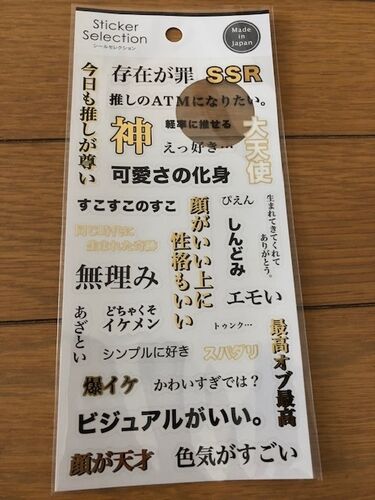 Sticker
Selection
シールセレクション
Made in
Japan
今日も推しが尊い
存在が罪
SSR
推しのATMになりたい。
神
軽率に推せる
えっ好き…
大天使
可愛さの化身
すこすこのすこ
顔がいい上に
性格もいい
ぴえん
しんどみ
生まれてきてくれて
ありがとう。
同じ時代に
生まれた奇跡
無理み
エモい
あざとい
どちゃくそ
イケメン
トゥンク…
最高オブ最高
シンプルに好き
スパダリ
爆イケ
かわいすぎでは？
ビジュアルがいい。
顔が天才
色気がすごい